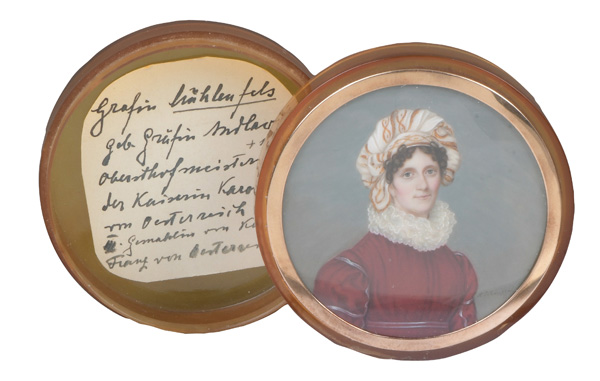 Gräfin Mühlenfels
geb. Gräfin Andlaw
Obersthofmeister
der Kaiserin Karo
von Oesterreich
III. Gemahlin von Ka
Franz von Oesterrei